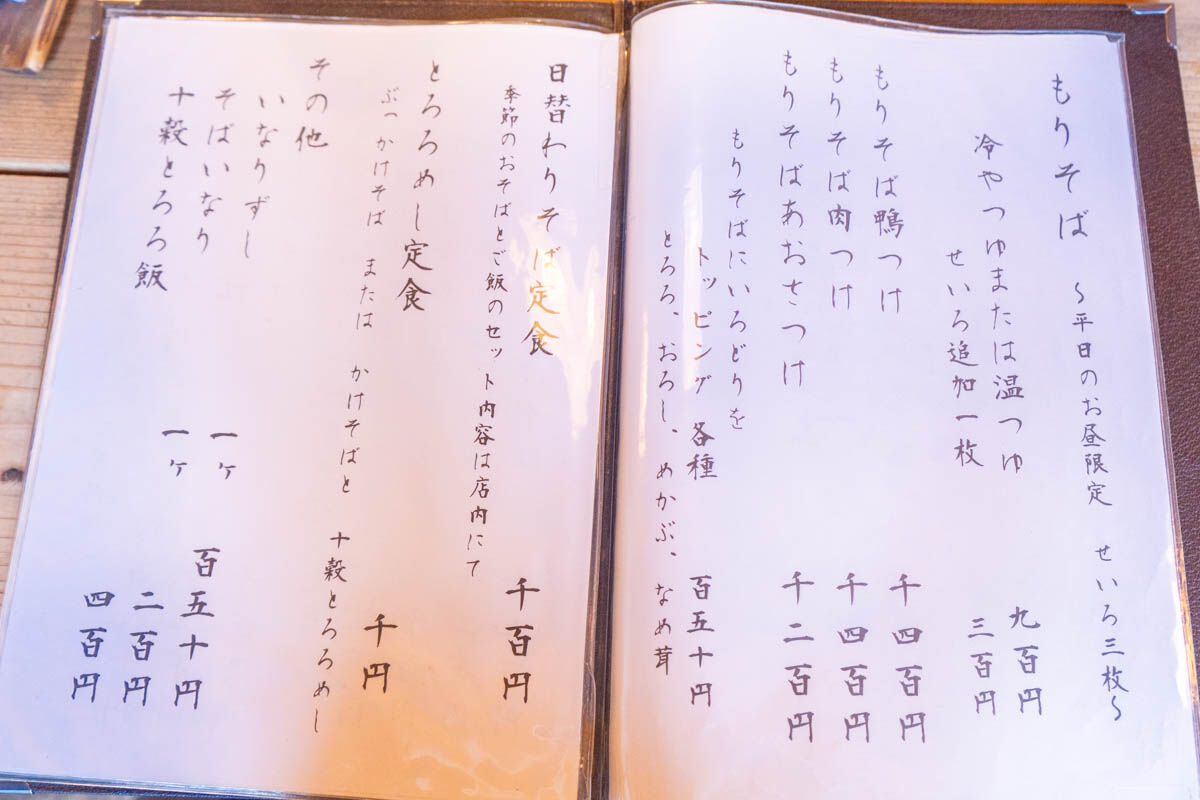 もりそば　～平日のお昼限定　せいろ三枚～
冷やつゆまたは温つゆ　九百円
せいろ追加一枚　三百円
もりそば鴨つけ　千四百円
もりそば肉つけ　千四百円
もりそばあおさつけ　千二百円
もりそばにいろどりを
トッピング各種　百五十円
とろろ、おろし、めかぶ、なめ茸
日替わりそば定食　千百円
季節のおそばとご飯のセット内容は店内にて
とろろめし定食　千円
ぶっかけそば　または　かけそばと　十穀とろろめし
その他
いなりずし　一ヶ　百五十円
そばいなり　一ヶ　二百円
十穀とろろ飯　四百円